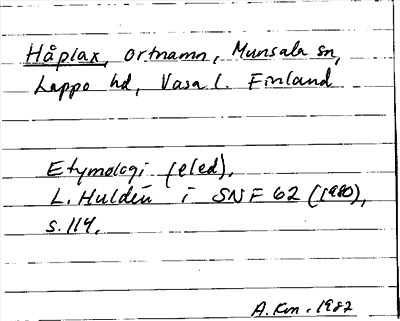 Håplax, ortnamn, Munsala sn,
Lappo hd, Vasa l. Finland
Etymologi (eled).
L. Huldén i SNF 62 (1980),
s. 114.
A. Km. 1982